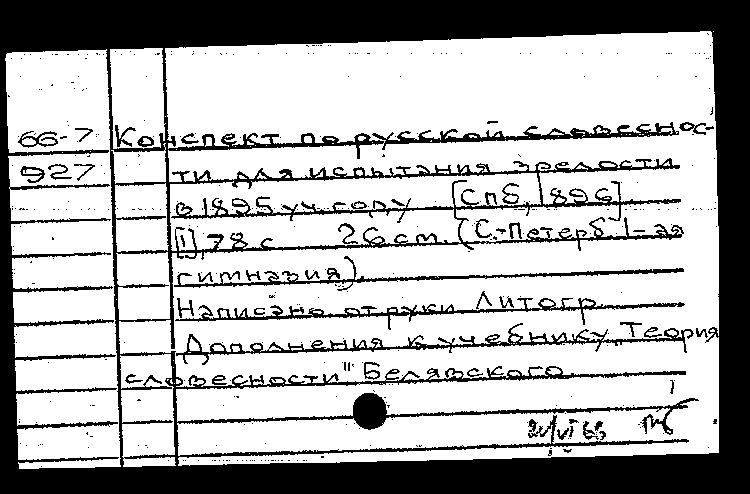 66-7 Конспект по русской словеснос-
927 ти для испытания зрелости
в 1895 уч. году [Спб, 1896]
[1], 78 с 26 см. (С.-Петерб. 1-ая
гимназия)
Написано от руки Литогр.
Дополнения к учебнику "Теория
словесности" Белявского